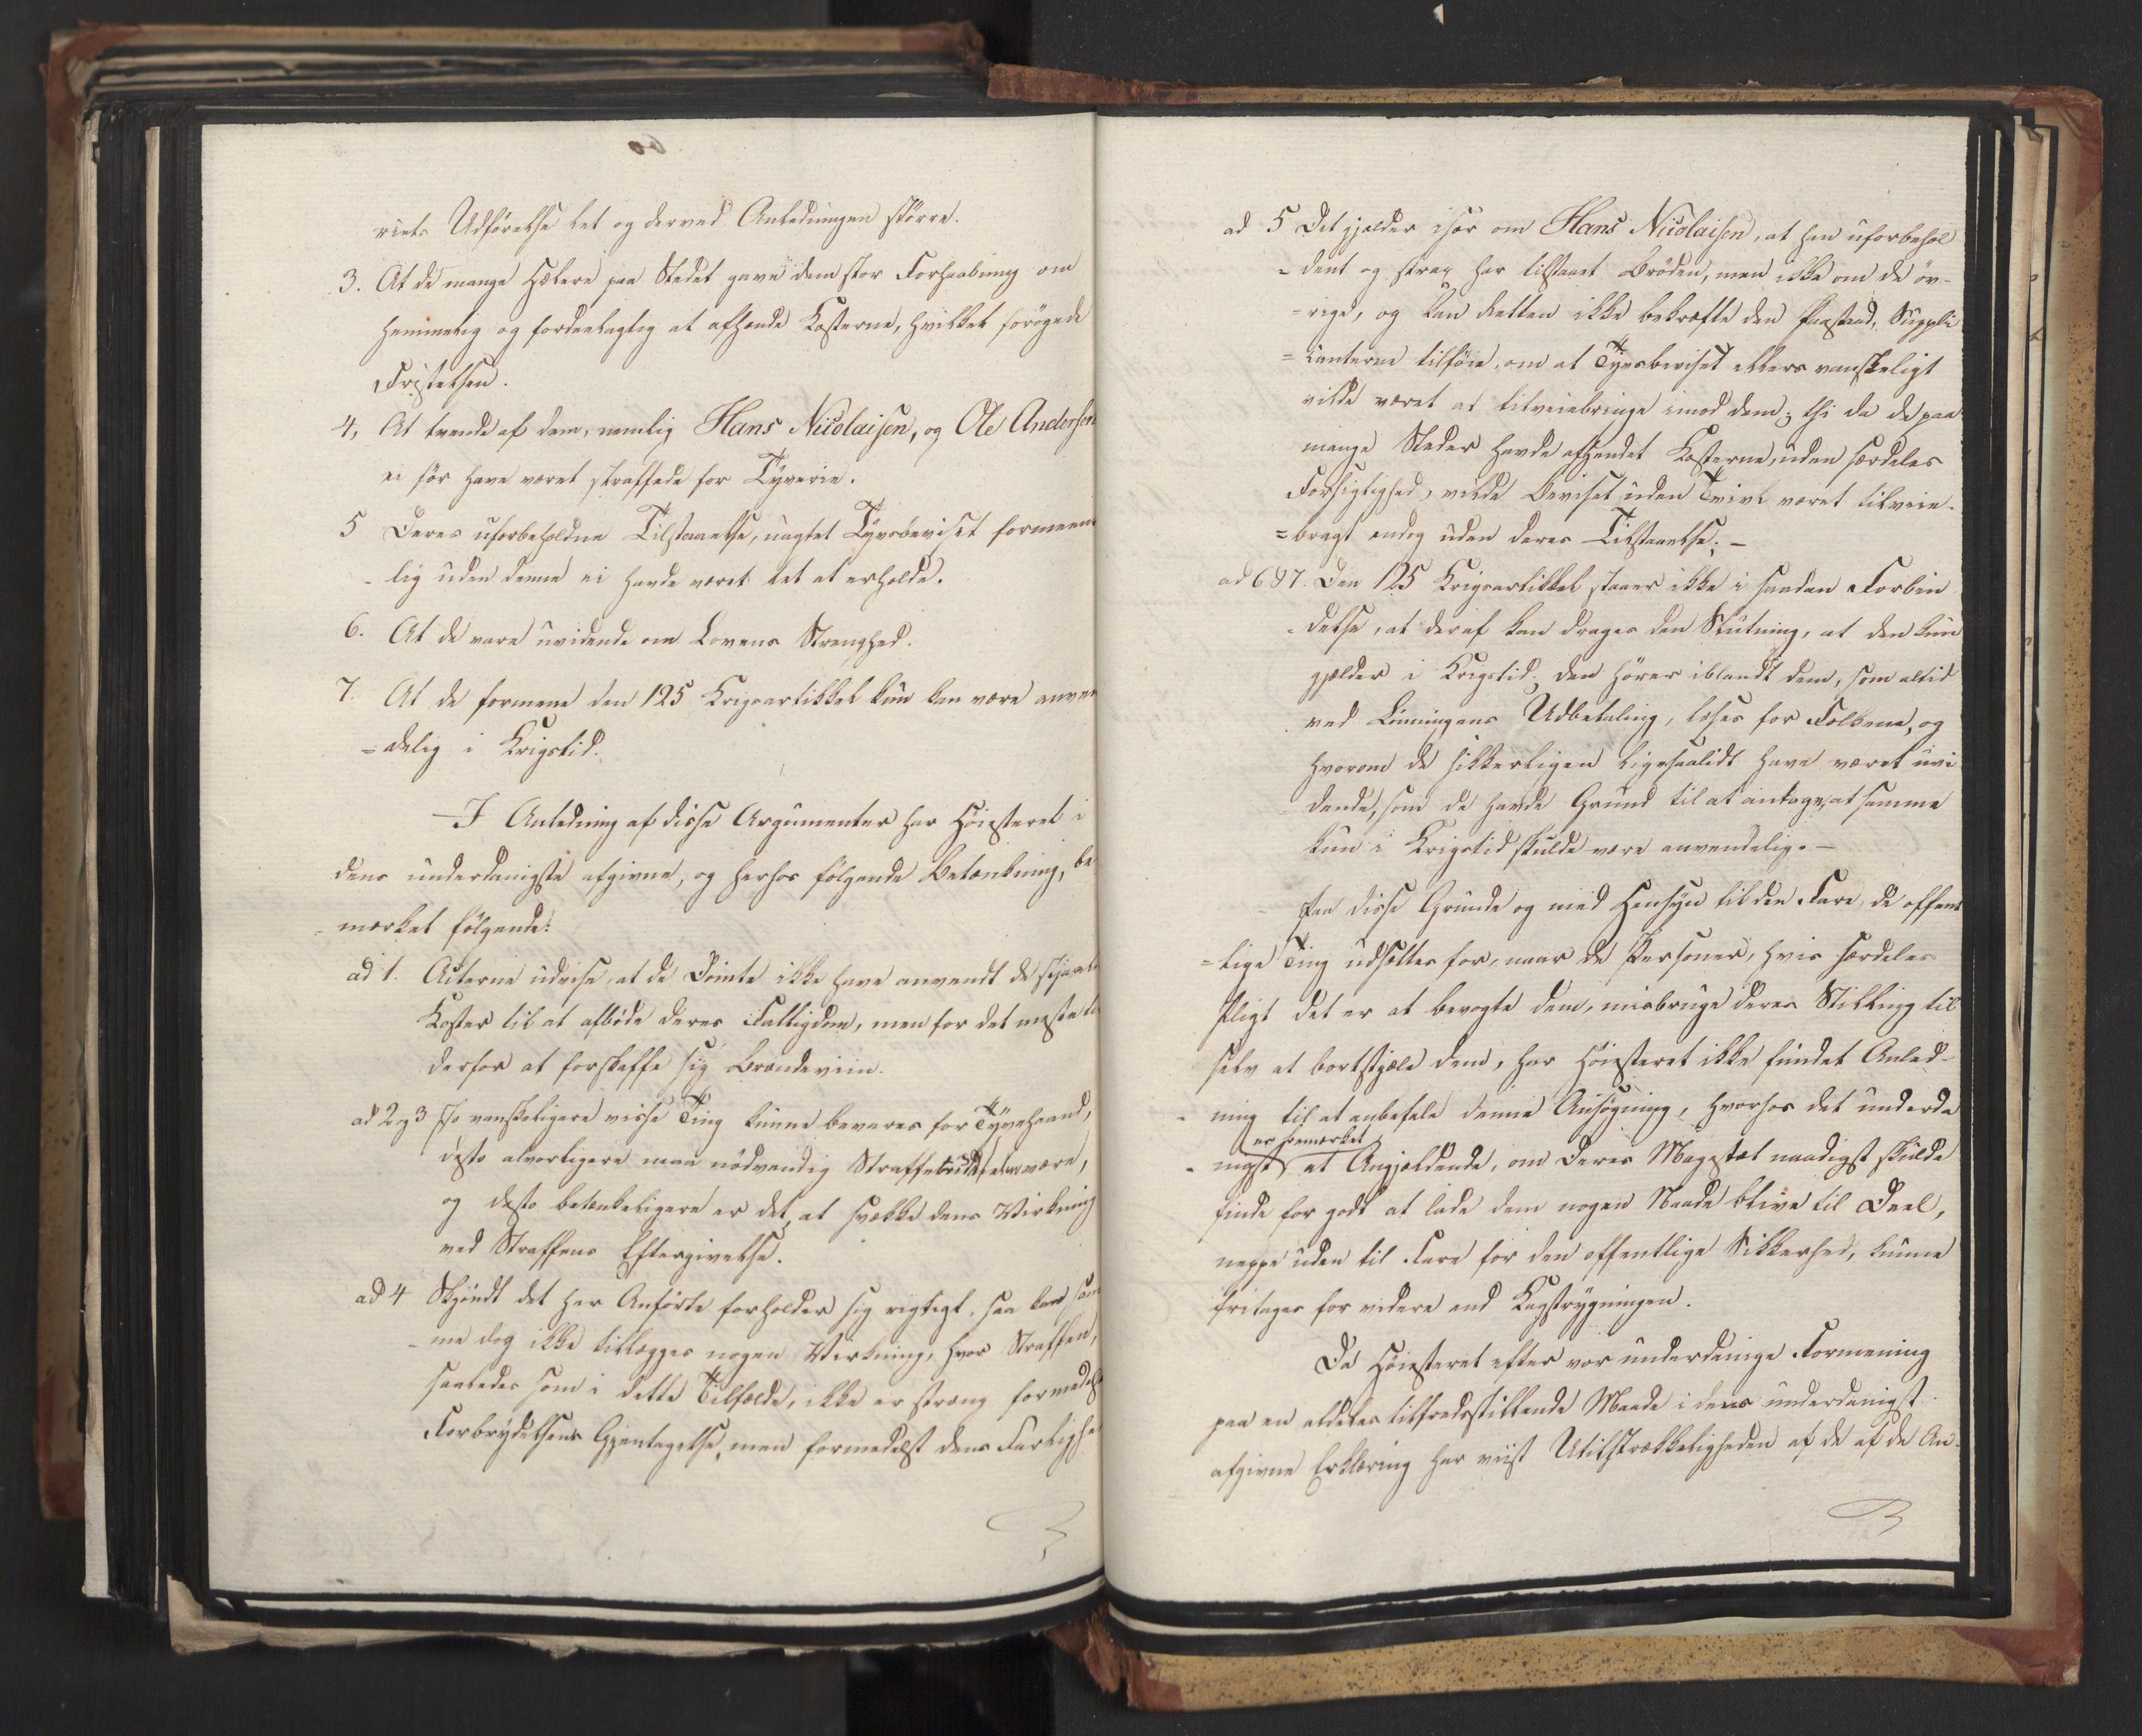 60
riets Udførelse let og derved Anledningen større.
3. At de mange Hælere paa Stedet gave dem stor Forhaabning om
hemmelig og fordeelagtig at afhænde Kosterne, hvilket forøgede
Fristelsen.
4, At tvende af dem, nemlig Hans Nicolaisen, og Ole Andersen
ei før have været straffede for Tyverie.
5 Deres uforbeholdne Tilstaaelse, uagtet Tyvsbeviset formeent
-lig uden denne ei havde været let at erholde.
6. At de vare uvidende om Lovens Strenghed.
7. At de formene den 125 Krigsartikkel kun kan være anven
=delig i Krigstid.
I Anledning af disse Argumenter har Høiesteret i
dens underdanigste afgivne, og herhos følgende Betænkning, be
-mærket følgende:
ad 1. Acterne udvise, at de Dömte ikke have anvendt de stjaalne
Koster til at afbøde deres Fattigdom, men for det meste til
derfor at forskaffe sig Brændeviin.
ad 2 & 3 Jo vanskeligere visse Ting kunne bevares for Tyvehaand,
desto alvorligere maa nödvendig Straffe være,
og desto betænkeligere er det, at svække dens Virkning
ved Straffens Eftergivelse.
ad 4 Skjöndt det her Anførte forholder sig rigtigt, saa kan sam
-me dog ikke tillægges nogen Virkning, hvor Straffen,
saaledes som i dette Tilfælde, ikke er streng formedelst
Forbrydelsens Gjentagelse, men formedelst dens Farlighed
ad 5 Det gjelder især om Hans Nicolaisen, at han uforbehol
-dent og strax har tilstaaet Brøden, men ikke om de öv-
=rige, og kan Retten ikke bekræfte den Paastand, Suppli
=canterne tilføie, om at Tyvsbeviset ellers vanskeligt
vilde været at tilveiebringe imod dem; thi da de paa
mange Steder havde afhændet Kosterne, uden særdeles
Forsigtighed, vilde Beviset uden Tvivl været tilveie-
=bragt endog uden deres Tilstaaelse. –
ad 6 & 7. Den 125 Krigsartikkel staaer ikke i saadan Forbin
-delse, at deraf kan drages den Slutning, at den kun
gjælder i Krigstid; den hörer iblandt dem, som altid
ved Lönningens Udbetaling, læses for Folkene, og
hvorom de sikkerligen ligesaalidt have været uvi
dende, som de havde Grund til at antage, at samme
kun i Krigstid skulde være anvendelig. –
Paa disse Grunde og med Hensyn til den Fare, de offent
=lige Ting udsættes for, naar de Personer, hvis særdeles
Pligt det er at bevogte dem, misbruge deres Stilling til
selv at bortstjæle dem, har Høiesteret ikke fundet Anled-
-ning til at anbefale denne Ansøgning, hvorhos det underda
er bemærket
-nigst at Angjældende, om Deres Magestæt naadigst skulde
finde for godt at lade dem nogen Naade blive til Deel,
neppe uden til Fare for den offentlige Sikkerhed, kunne
fritages for videre end Kagstrygningen.
Da Höiesteret efter vor underdanige Formening
paa en aldeles tilfredsstillende Maade i dens underdanigst
afgivne Erklæring har viist Utilstrækkeligheden af de af de An-